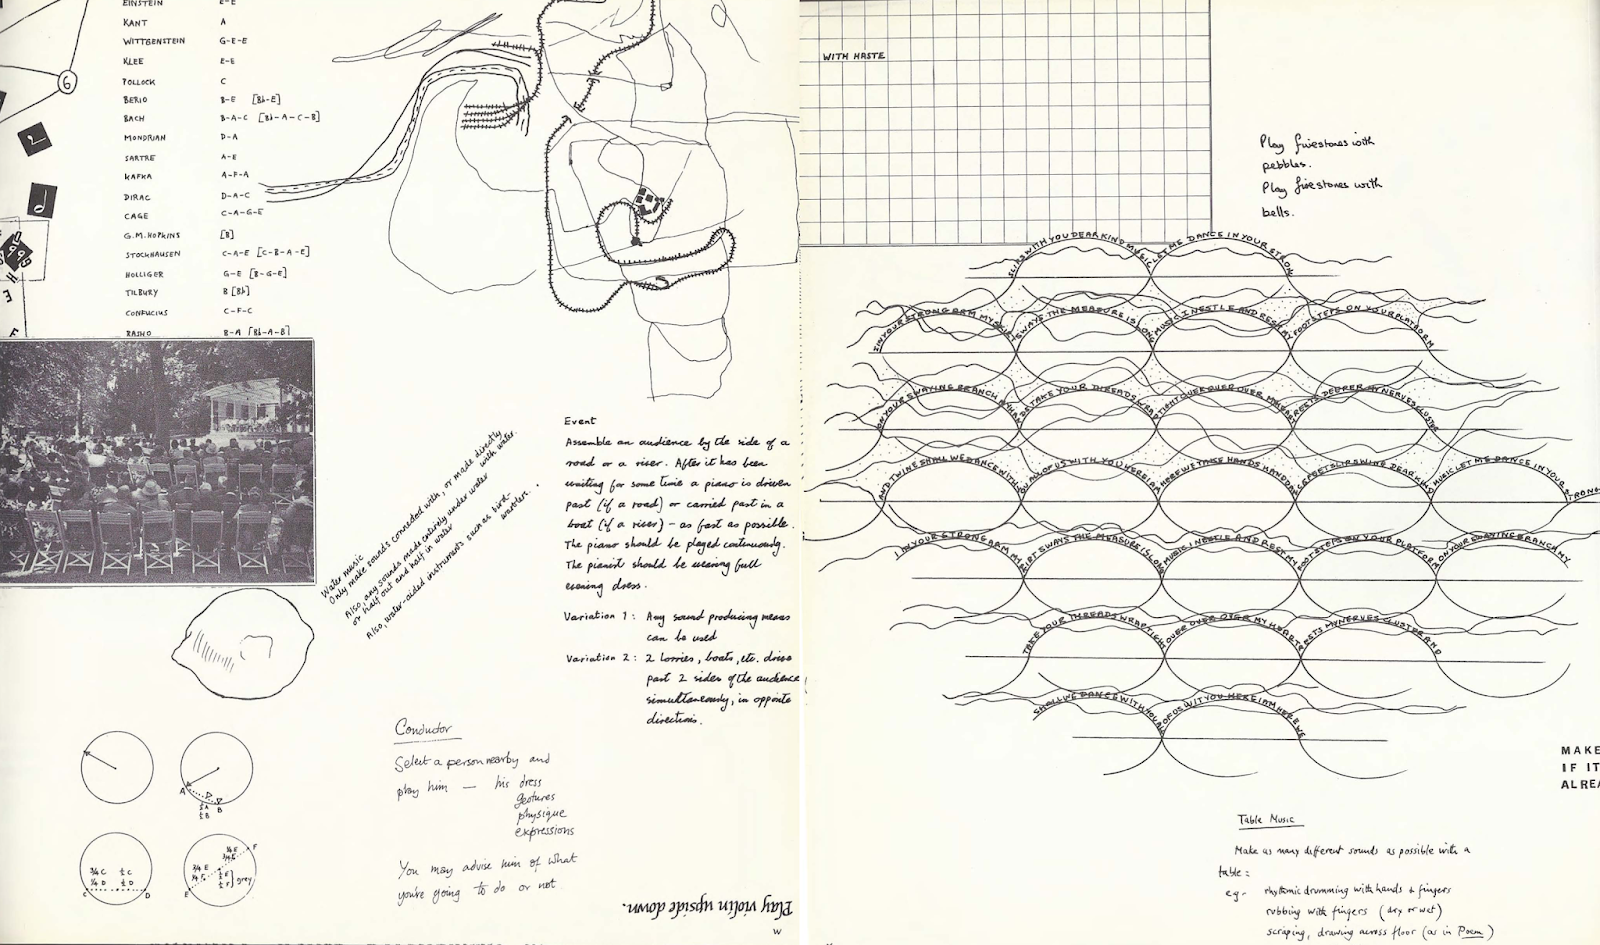 EINSTEIN E-E
KANT A
WITTGENSTEIN G-E-E
KLEE E-E
POLLOCK C
BERIO B-E [Bb-E]
BACH B-A-C [Bb-A-C-B]
MONDRIAN D-A
SARTRE A-E
KAFKA A-F-A
DIRAC D-A-C
CAGE C-A-G-E
G.M.HOPKINS [B]
STOCKHAUSEN C-A-E [C-B-A-E]
HOLLIGER G-E [B-G-E]
TILBURY B [Bb]
CONFUCIUS C-F-C
BASHO B-A [Bb-A-B]
6
Water music
Only make sounds connected with, or made directly with water.
Also, any sounds made entirely under water
or half out and half in water
Also, water-aided instruments such as bird-warblers.
Event
Assemble an audience by the side of a
road or a river. After it has been
waiting for some time a piano is driven
past (if a road) or carried past in a
boat (if a river) – as fast as possible.
The piano should be played continuously.
The pianist should be wearing full
evening dress.
Variation 1: Any sound producing means
can be used
Variation 2: 2 lorries, boats, etc. drive
past 2 sides of the audience
simultaneously, in opposite
directions.
Conductor
Select a person nearby and
play him — his dress
gestures
physique
expressions
You may advise him of what
you're going to do or not
A
B
½A
½B
¾C ½C
¼D ½D
C D
¼E
¾F
F
¾E
¼F
½E
½F
grey
E
Play violin upside down.
W
WITH HASTE
Play firestones with
pebbles.
Play firestones with
bells.
SLIPS WITH YOU DEAR KIND MUSIC LET ME DANCE IN YOUR STRON
I IN YOUR STRONG ARM MY SKIRT SWAYS THE MEASURE IS LONG MUSIC I NESTLE AND REST MY FOOTSTEPS ON YOUR PLATFORM
ON YOUR SWAYING BRANCH MY HAND TAKE YOUR THREADS WRAP TIGHT OVER OVER OVER MY HEART RESTS DEEPER MY NERVES CLUSTER
AND TWINE SHALL WE DANCE WITH YOU ALL OF US WITH YOU HERE I AM HERE WE TAKE HANDS HAND ON FEET SLIPS WING DEAR KIND MUSIC LET ME DANCE IN YOUR STRONG
I IN YOUR STRONG ARM MY SKIRT SWAYS THE MEASURE IS LONG MUSIC I NESTLE AND REST MY FOOTSTEPS ON YOUR PLATFORM ON YOUR SWAYING BRANCH MY
TAKE YOUR THREADS WRAP TIGH OVER OVER OVER MY HEART RESTS MY NERVES CLUSTER AND
SHALL WE DANCE WITH YOU ALL OF US WIT YOU HERE I AM HERE WE
MAKE
IF IT
ALREA
Table Music
Make as many different sounds as possible with a
table:
e.g. rhythmic drumming with hands & fingers
rubbing with fingers (dry or wet)
scraping, drawing across floor (as in Poem)